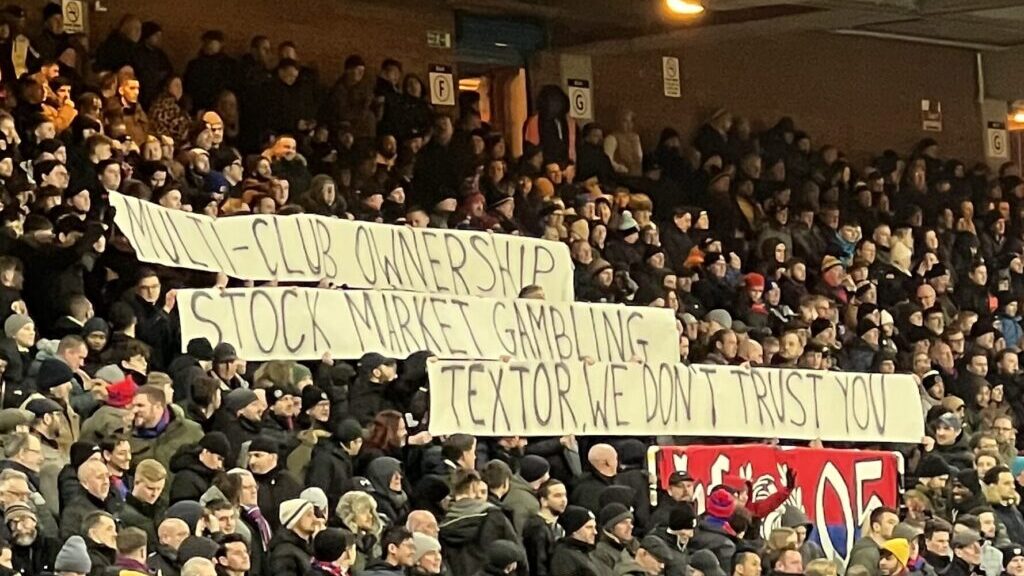 F
G
G
MULTI-CLUB OWNERSHIP
STOCK MARKET GAMBLING
TEXTOR, WE DON'T TRUST YOU
05